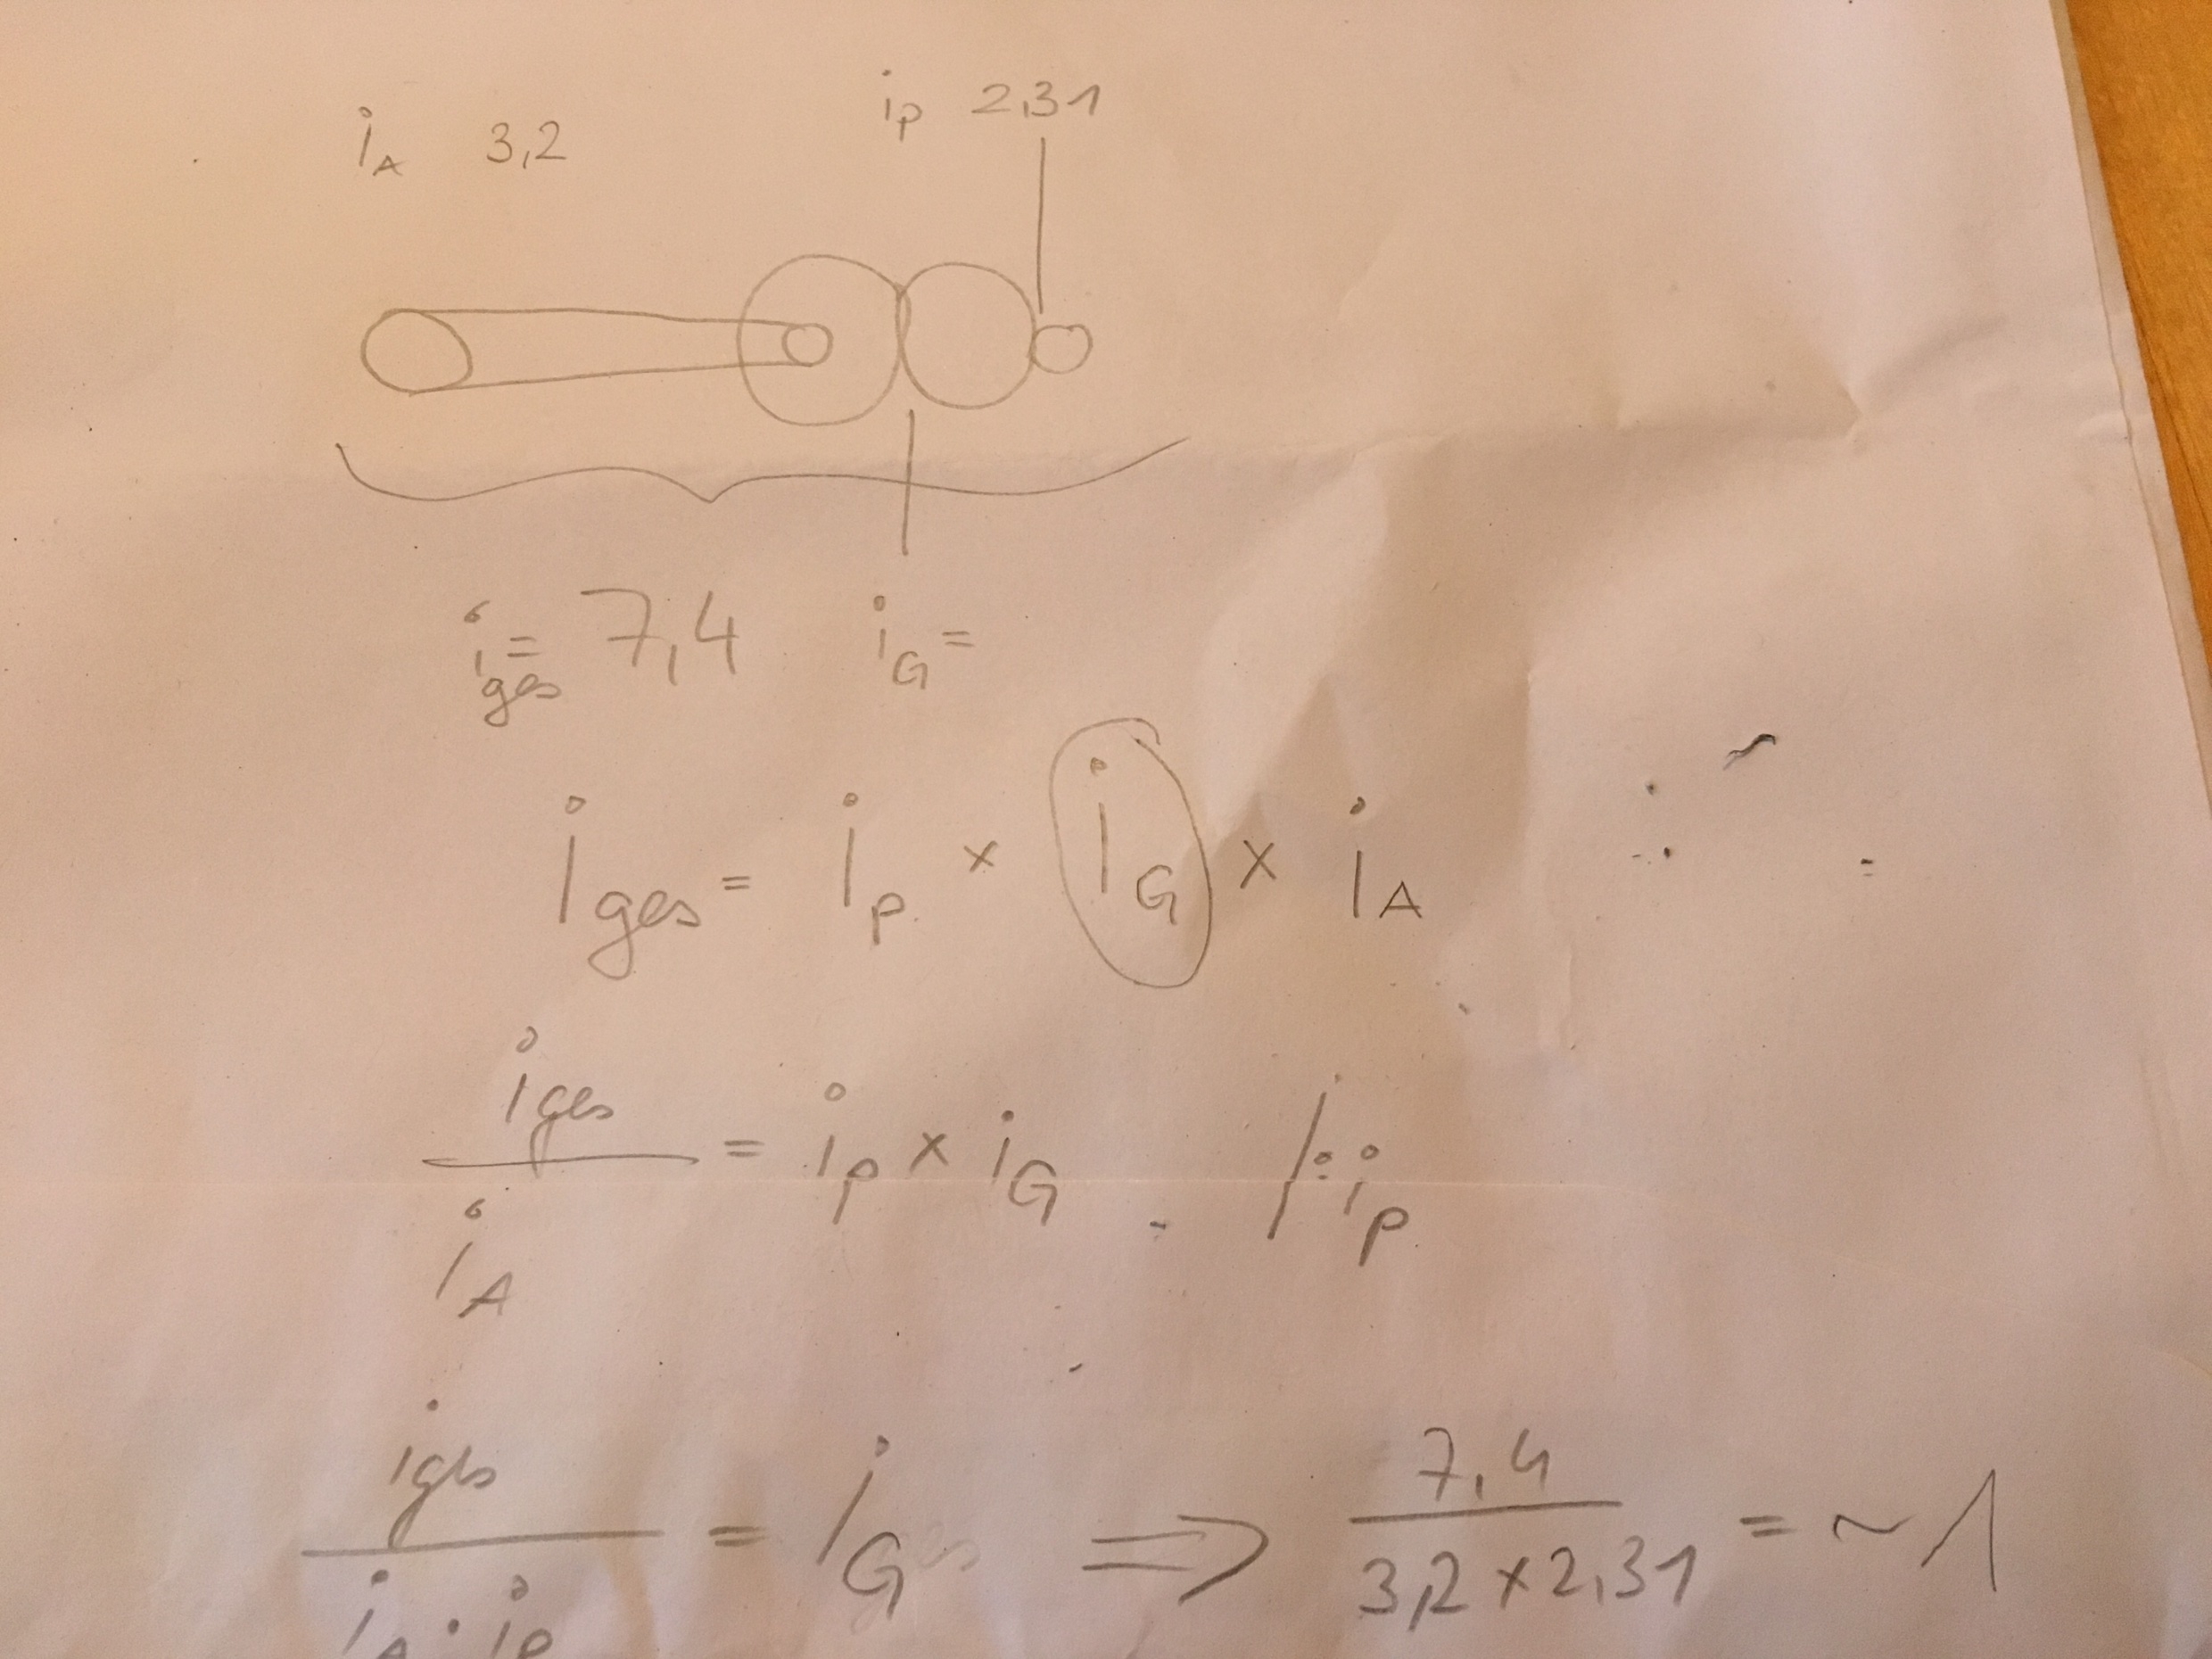 i_A 3,2 i_P 2,31
i_ges = 7,4 i_G =
i_ges = i_P × i_G × i_A
i_ges / i_A = i_P × i_G /: i_P
i_ges / i_A · i_P = i_G ⇒ 7,4 / 3,2 × 2,31 = ~1